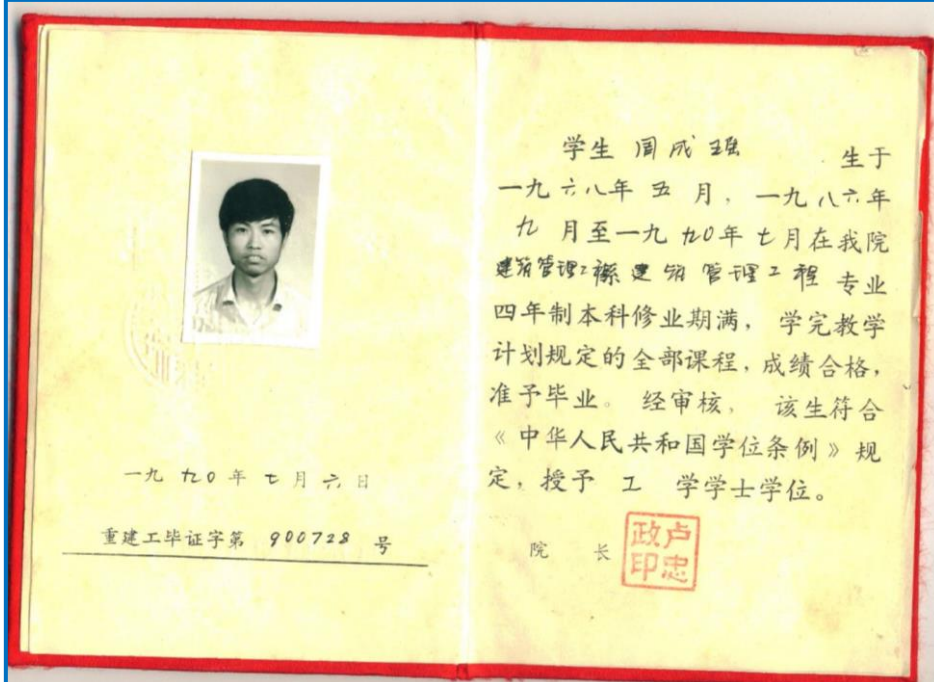 一九九0年七月六日
重建工毕证字第 900728 号
学生 成强 生于
一九六八年 五 月，一九八六年
九 月至一九九0年七月在我院
建筑管理工程系 建筑管理工程 专业
四年制本科修业期满，学完教学
计划规定的全部课程，成绩合格，
准予毕业。 经审核， 该生符合
《中华人民共和国学位条例》规
定，授予 工 学学士学位。
院 长 卢忠政印